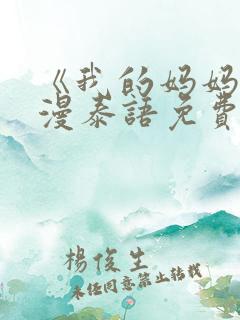 《我的妈妈
漫泰語免費
楊俊生
未任同意禁止转载